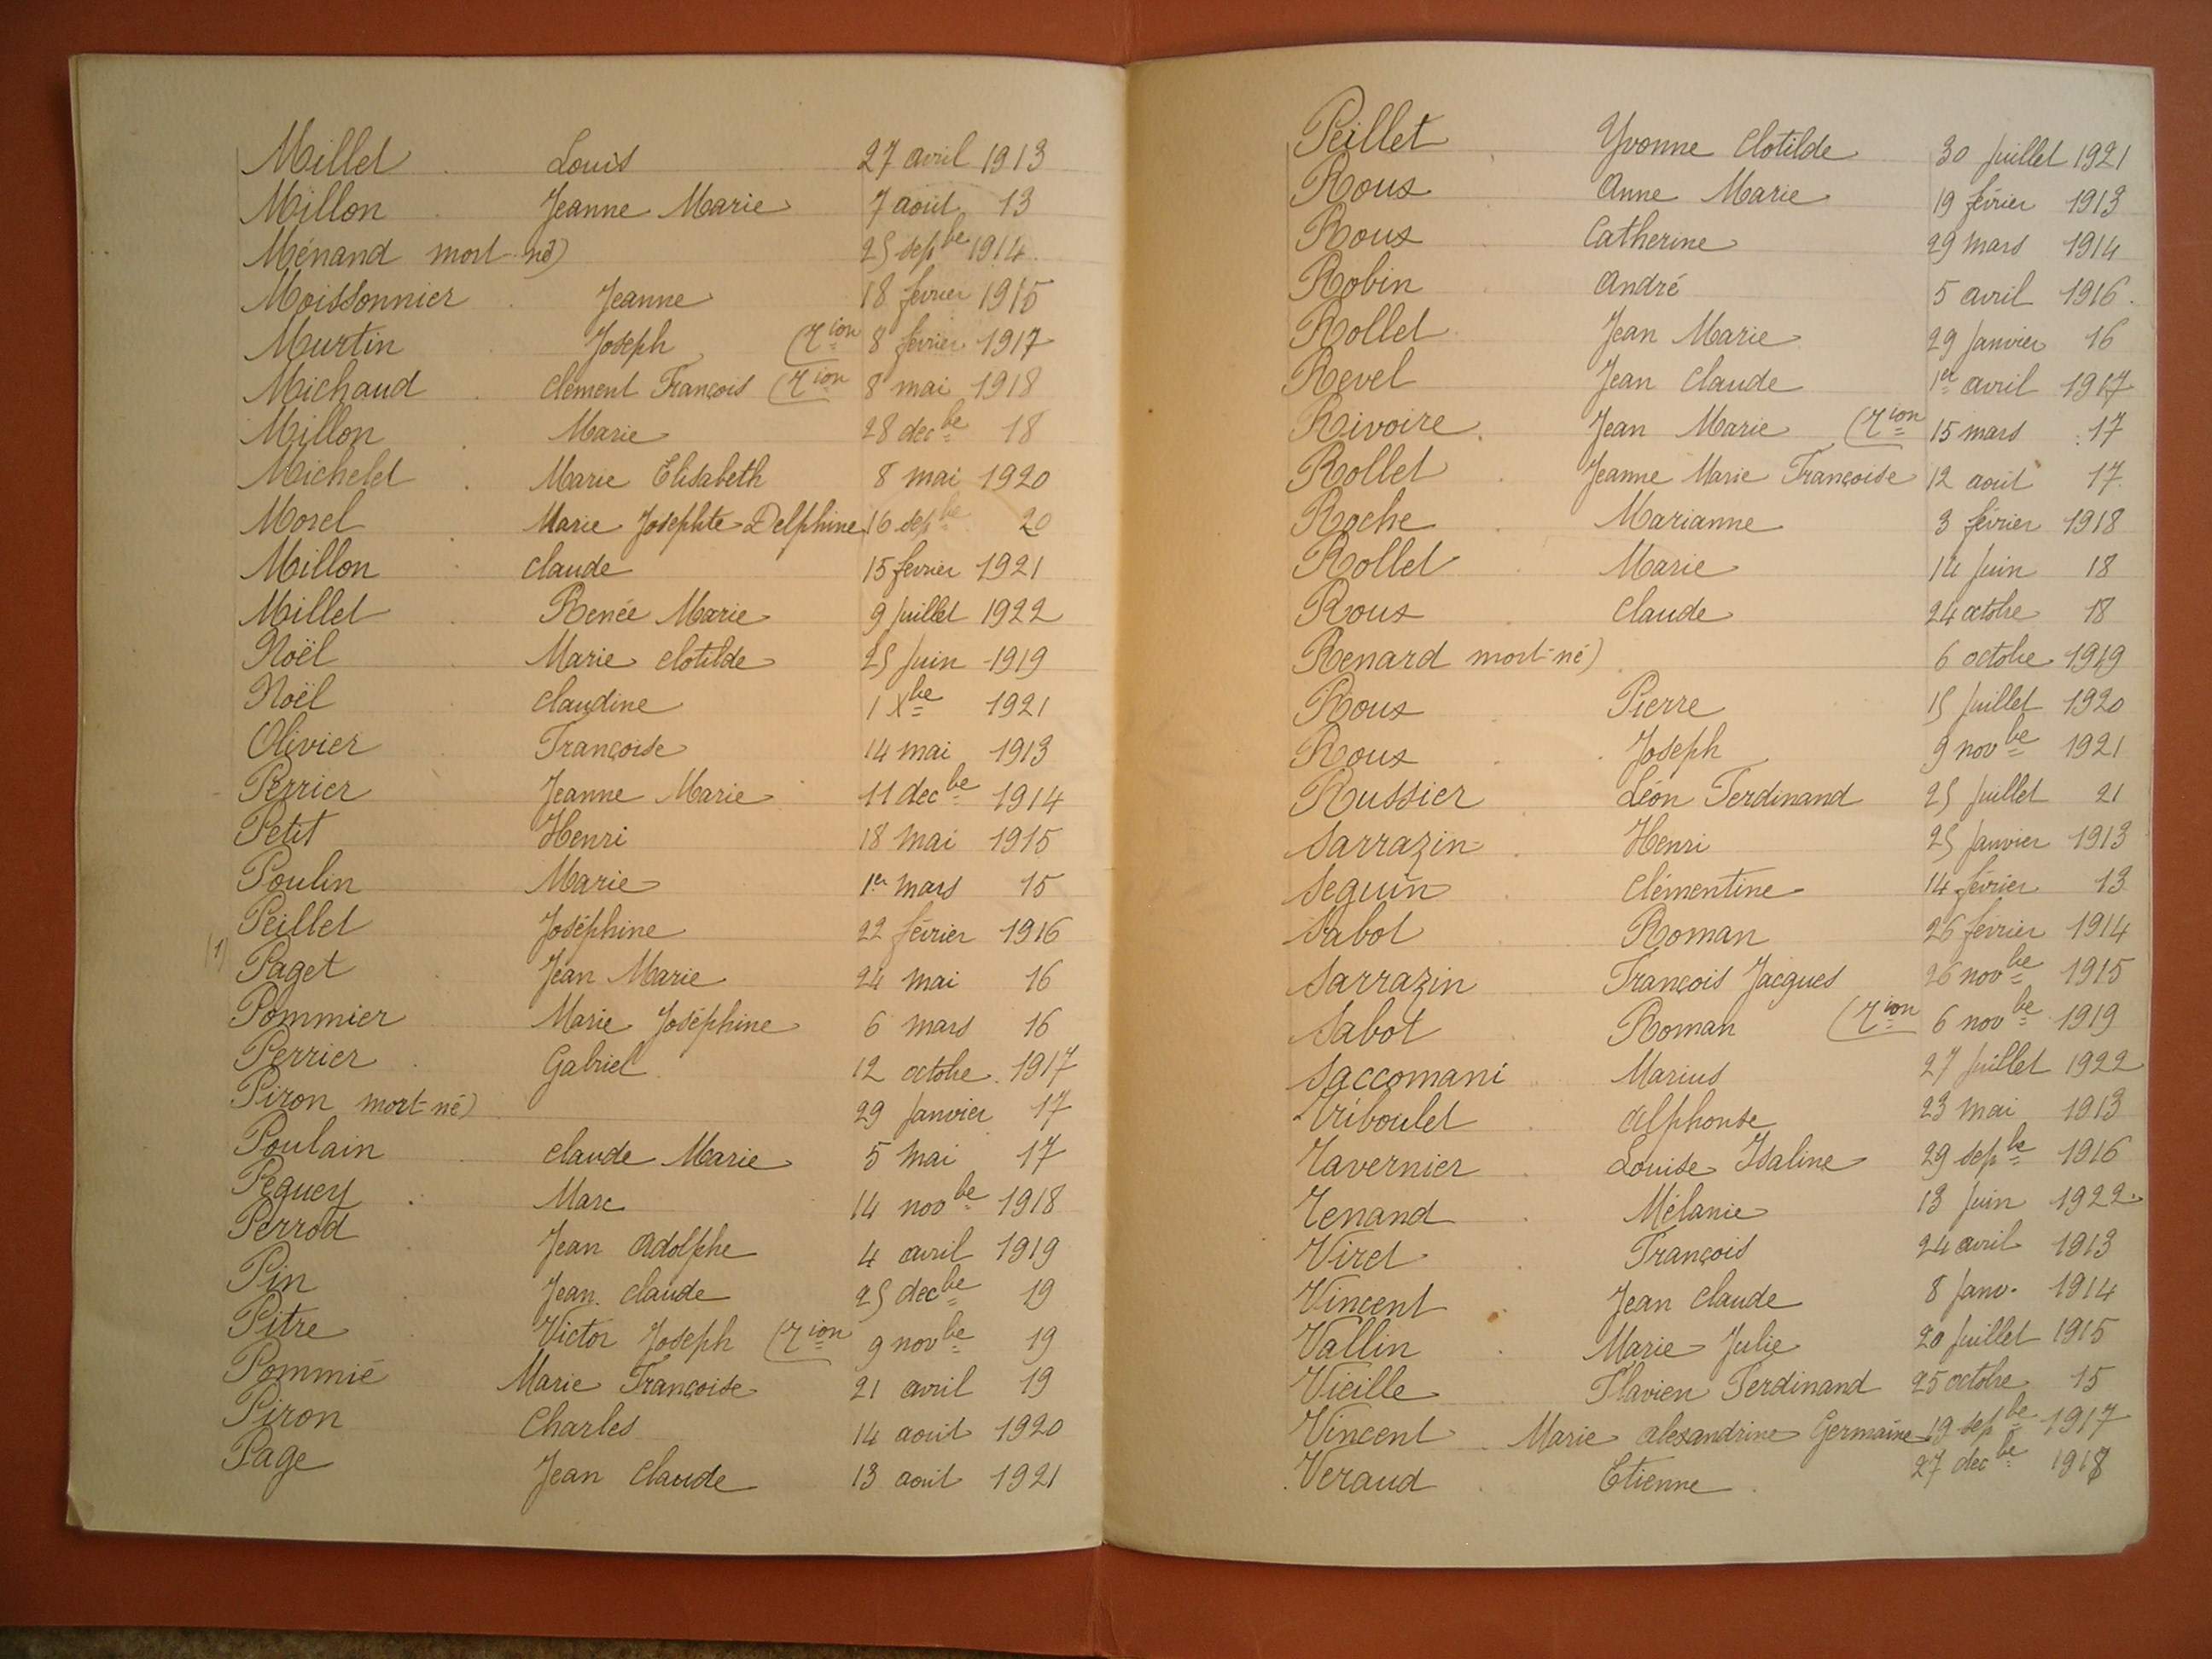 Millet Louis 27 avril 1913
Millon Jeanne Marie 7 août 13
Ménand mort-né) 25 sepbe 1914
Moissonnier Jeanne 18 février 1915
Murtin Joseph (Tion 8 février 1917
Michaud Clément François (Tion 8 mai 1918
Millon Marie 28 decbe 18
Michelet Marie Elisabeth 8 mai 1920
Morel Marie Josephte Delphine 16 sepbe 20
Millon Claude 15 février 1921
Millet Renée Marie 9 juillet 1922
Noël Marie Clotilde 25 juin 1919
Noël Claudine 1 Xbe 1921
Olivier Françoise 14 mai 1913
Perrier Jeanne Marie 11 decbe 1914
Petit Henri 18 mai 1915
Poulin Marie 1er mars 15
Peillet Joséphine 22 février 1916
(1) Paget Jean Marie 24 mai 16
Pommier Marie Joséphine 6 mars 16
Perrier Gabriel 12 octobre 1917
Piron mort-né) 29 janvier 17
Poulain Claude Marie 5 mai 17
Peguey Marc 14 novbe 1918
Perrod Jean Adolphe 4 avril 1919
Pin Jean Claude 25 decbe 19
Pitre Victor Joseph (Tion 9 novbe 19
Pommié Marie Françoise 21 avril 19
Piron Charles 14 août 1920
Page Jean Claude 13 août 1921
Peillet Yvonne Clotilde 30 juillet 1921
Roux Anne Marie 19 février 1913
Roux Catherine 29 mars 1914
Robin André 5 avril 1916
Rollet Jean Marie 29 janvier 16
Revel Jean Claude 1er avril 1917
Rivoire Jean Marie (Tion 15 mars 17
Rollet Jeanne Marie Françoise 12 août 17
Roche Marianne 3 février 1918
Rollet Marie 14 juin 18
Roux Claude 24 octobre 18
Renard mort-né) 6 octobre 1919
Roux Pierre 15 juillet 1920
Roux Joseph 9 novbe 1921
Russier Léon Ferdinand 25 juillet 21
Sarrazin Henri 25 janvier 1913
Seguin Clémentine 14 février 13
Sabot Roman 26 février 1914
Sarrazin François Jacques 26 novbe 1915
Sabot Roman (Tion 6 novbe 1919
Saccomani Marius 27 juillet 1922
Triboulet Alphonse 23 mai 1913
Tavernier Louise Isaline 29 sepbe 1916
Tenand Mélanie 13 juin 1922
Viret François 24 avril 1913
Vincent Jean Claude 8 janv. 1914
Vallin Marie Julie 20 juillet 1915
Vieille Flavien Ferdinand 25 octobre 15
Vincent Marie Alexandrine Germaine 19 sepbe 1917
Veraud Etienne 27 decbe 1918